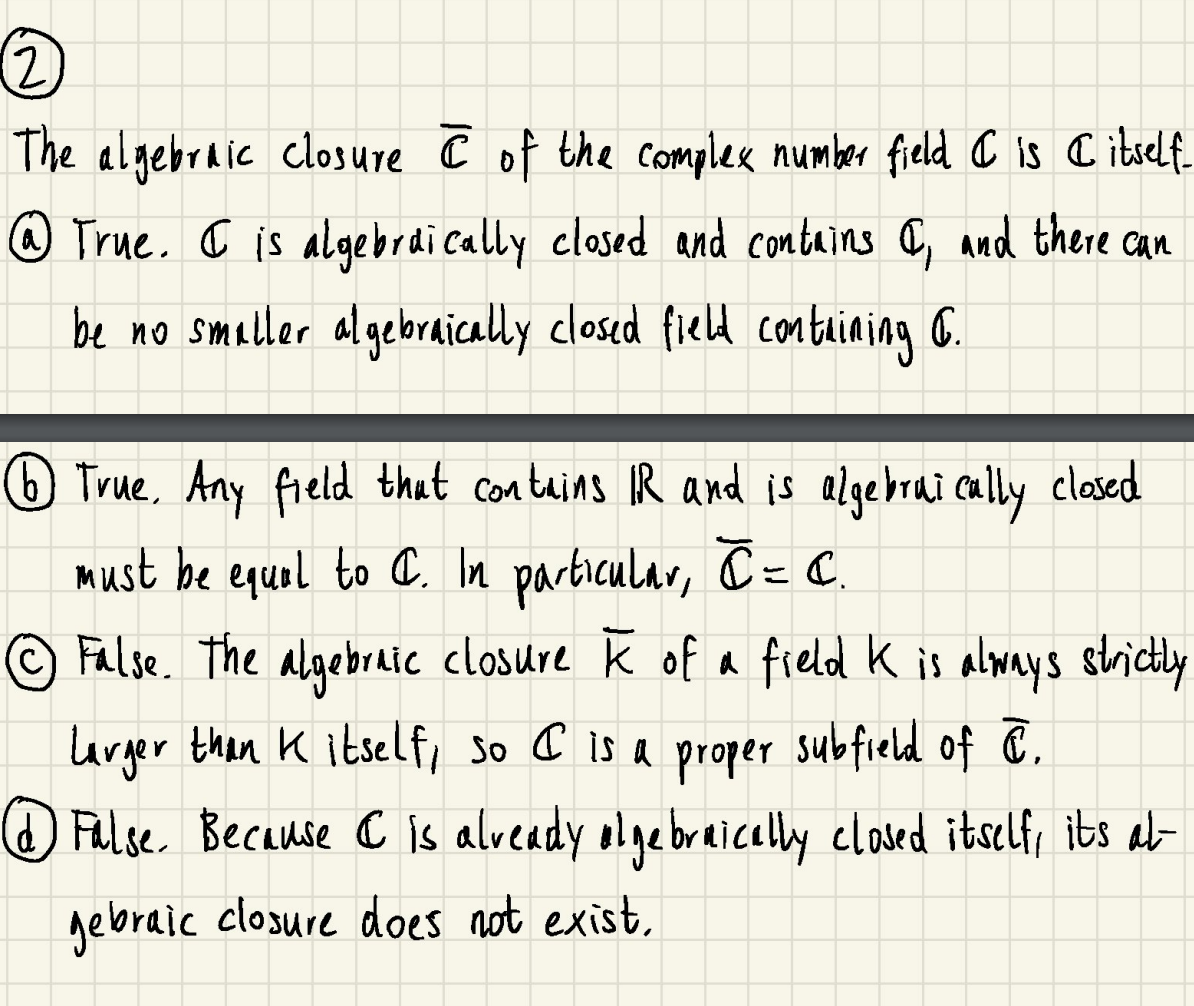 ②
The algebraic closure ℂ̅ of the complex number field ℂ is ℂ itself.
ⓐ True. ℂ is algebraically closed and contains ℂ, and there can
be no smaller algebraically closed field containing ℂ.
ⓑ True. Any field that contains ℝ and is algebraically closed
must be equal to ℂ. In particular, ℂ̅ = ℂ.
ⓒ False. The algebraic closure K̅ of a field K is always strictly
larger than K itself, so ℂ is a proper subfield of ℂ̅.
ⓓ False. Because ℂ is already algebraically closed itself, its al-
gebraic closure does not exist.